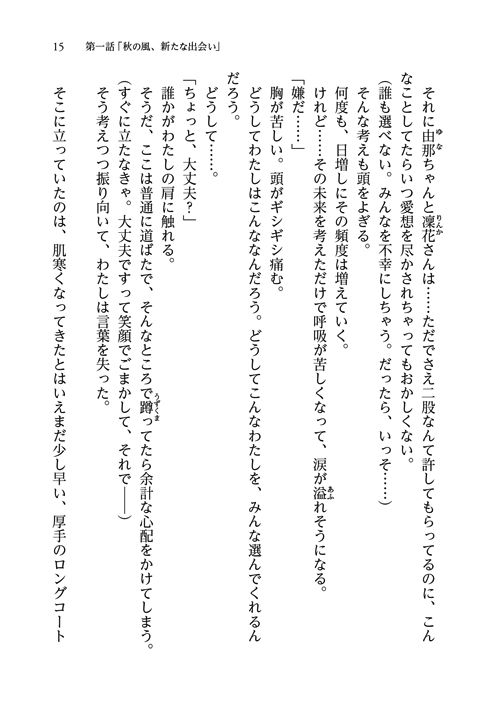 15　第一話「秋の風、新たな出会い」
それに由那ちゃんと凜花さんは……ただでさえ二股なんて許してもらってるのに、こん
なことしてたらいつ愛想を尽かされちゃってもおかしくない。
（誰も選べない。みんなを不幸にしちゃう。だったら、いっそ……）
そんな考えも頭をよぎる。
何度も、日増しにその頻度は増えていく。
けれど……その未来を考えただけで呼吸が苦しくなって、涙が溢れそうになる。
「嫌だ……」
胸が苦しい。頭がギシギシ痛む。
どうしてわたしはこんななんだろう。どうしてこんなわたしを、みんな選んでくれるん
だろう。
どうして……。
「ちょっと、大丈夫？」
誰かがわたしの肩に触れる。
そうだ、ここは普通に道ばたで、そんなところで蹲ってたら余計な心配をかけてしまう。
（すぐに立たなきゃ。大丈夫ですって笑顔でごまかして、それで――）
そう考えつつ振り向いて、わたしは言葉を失った。
そこに立っていたのは、肌寒くなってきたとはいえまだ少し早い、厚手のロングコート